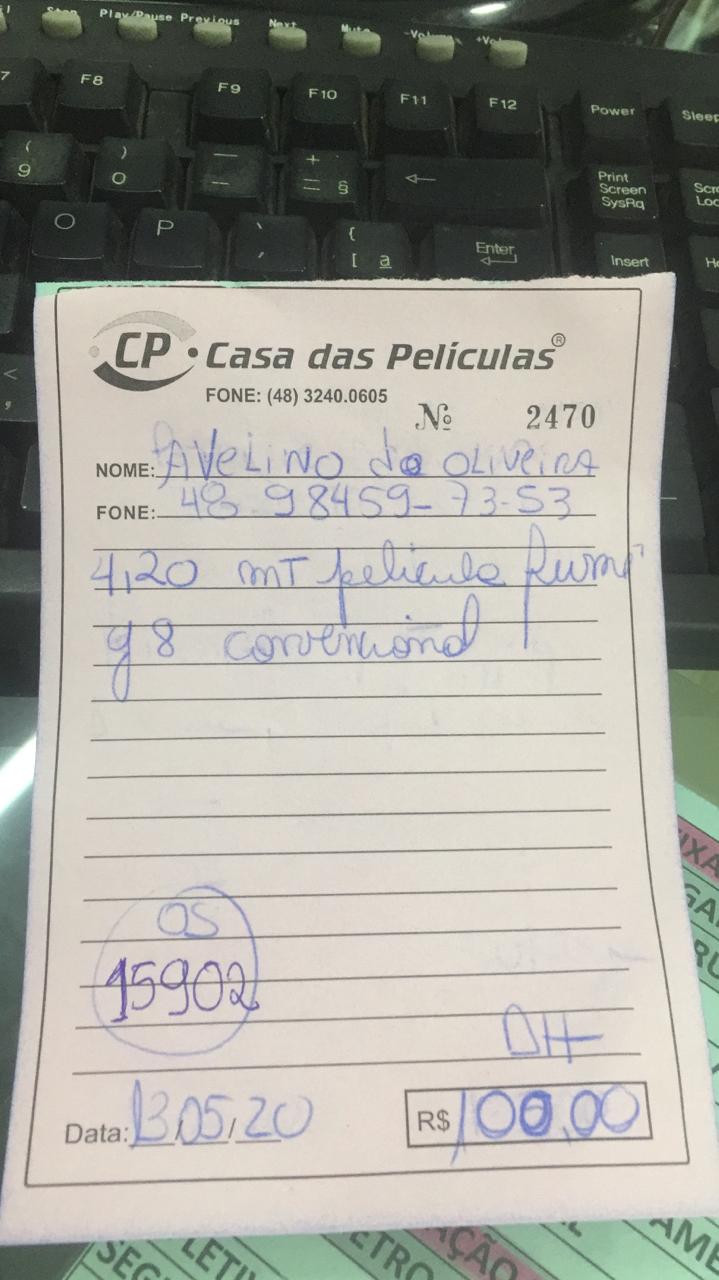 Stop Play/Pause Previous Next Mute -Volume +Volume
7 F8 F9 F10 F11 F12 Power Sleep
( 9 ) 0 — + = § ← Print Screen SysRq
O P { [ a Enter Insert
CP Casa das Películas®
FONE: (48) 3240.0605
Nº 2470
NOME: AVELINO de OLIVEIRA
FONE: 48 98459-73-53
4,20 MT película fumê
g8 convencional
OS
15902
DH
Data: 13/05/20 R$ 100,00